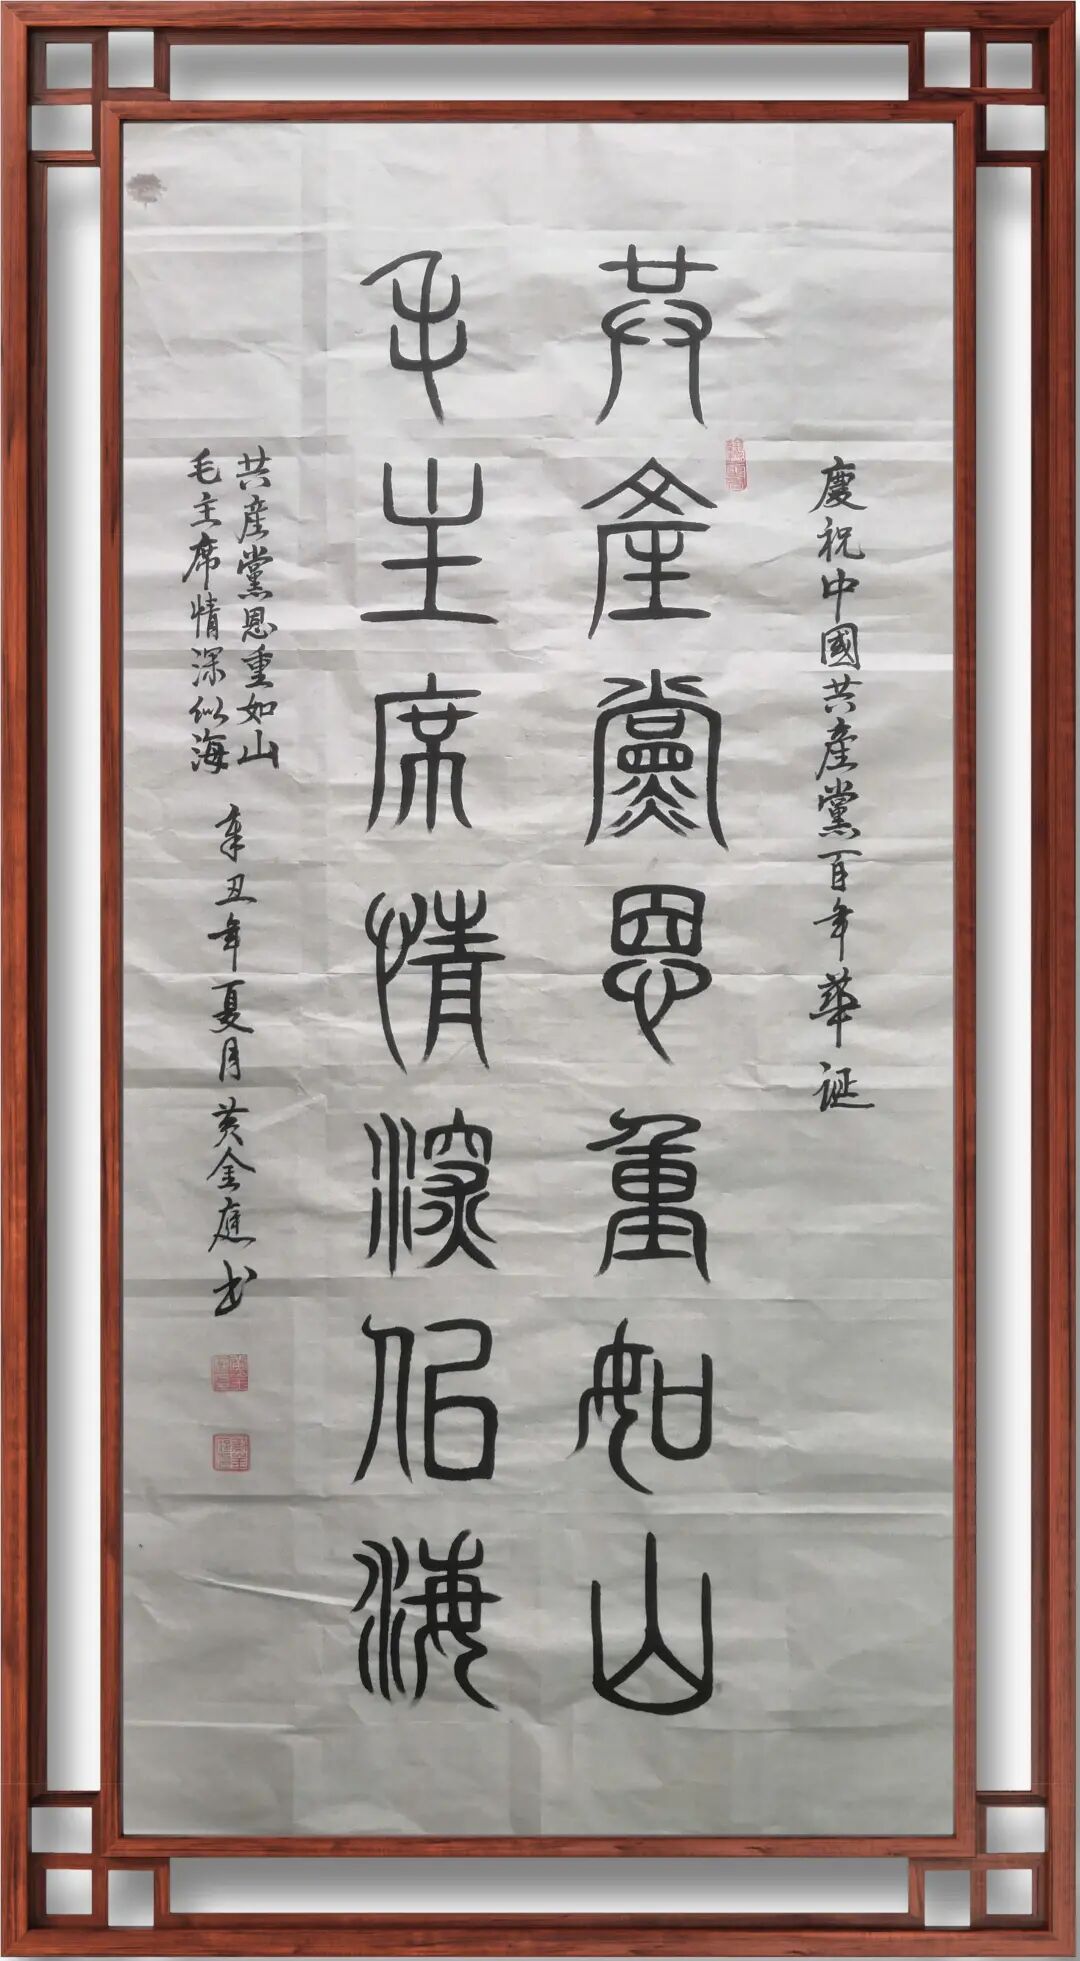 慶祝中國共產黨百年華誕
共產黨恩重如山
毛主席情深似海
共產黨恩重如山
毛主席情深似海
辛丑年夏月黃金應书